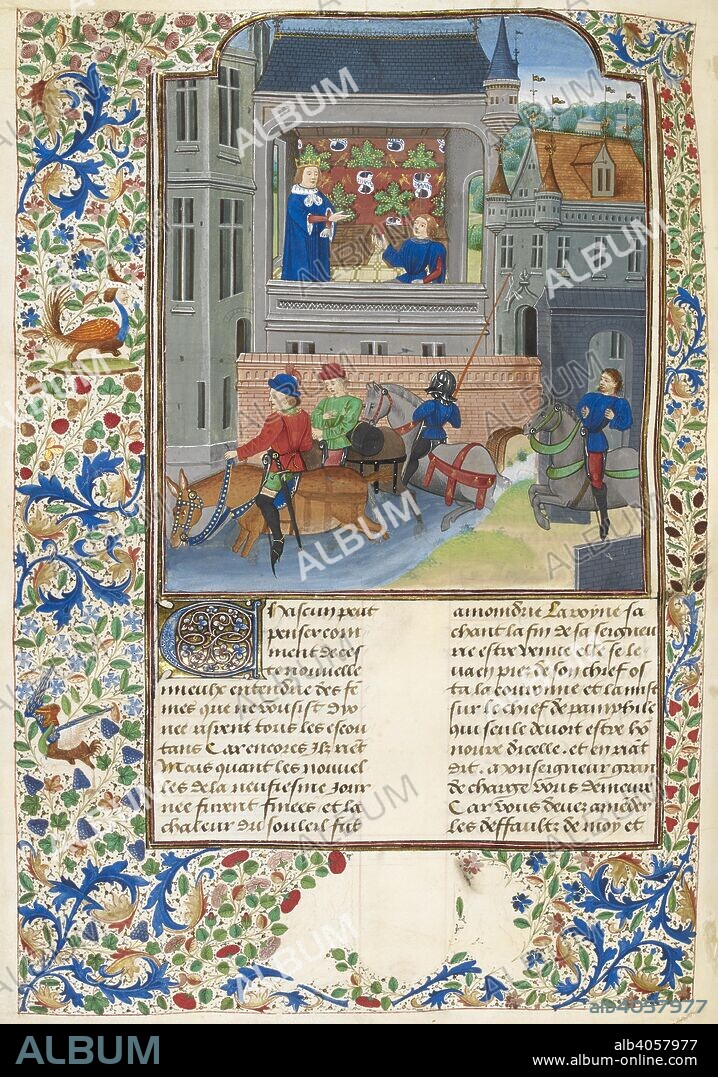 Chascun peut
penser com
ment de ces
te nouvelle
mieulx entendre des fe
mes que ne voulsist dyo
nee risrent tous les escou
tans Car encores ilz rient
Mais quant les nouvel
les de la neufiesme Jour
nee furent finees et la
chaleur du souleil fus
amoindrie La royne sa
chant la fin de sa seigneu
rie estre venue elle se le
va en piez de son chief os
ta la couronne et la mist
sur le chief de pamphile
qui seule devoit estre ho
noure dicelle. et en riāt
dit. Monseigneur gran
de charge vous demeure
Car vous devez amēder
les deffaultz de moy et
ALBUM
alb4057977
www.album-online.com